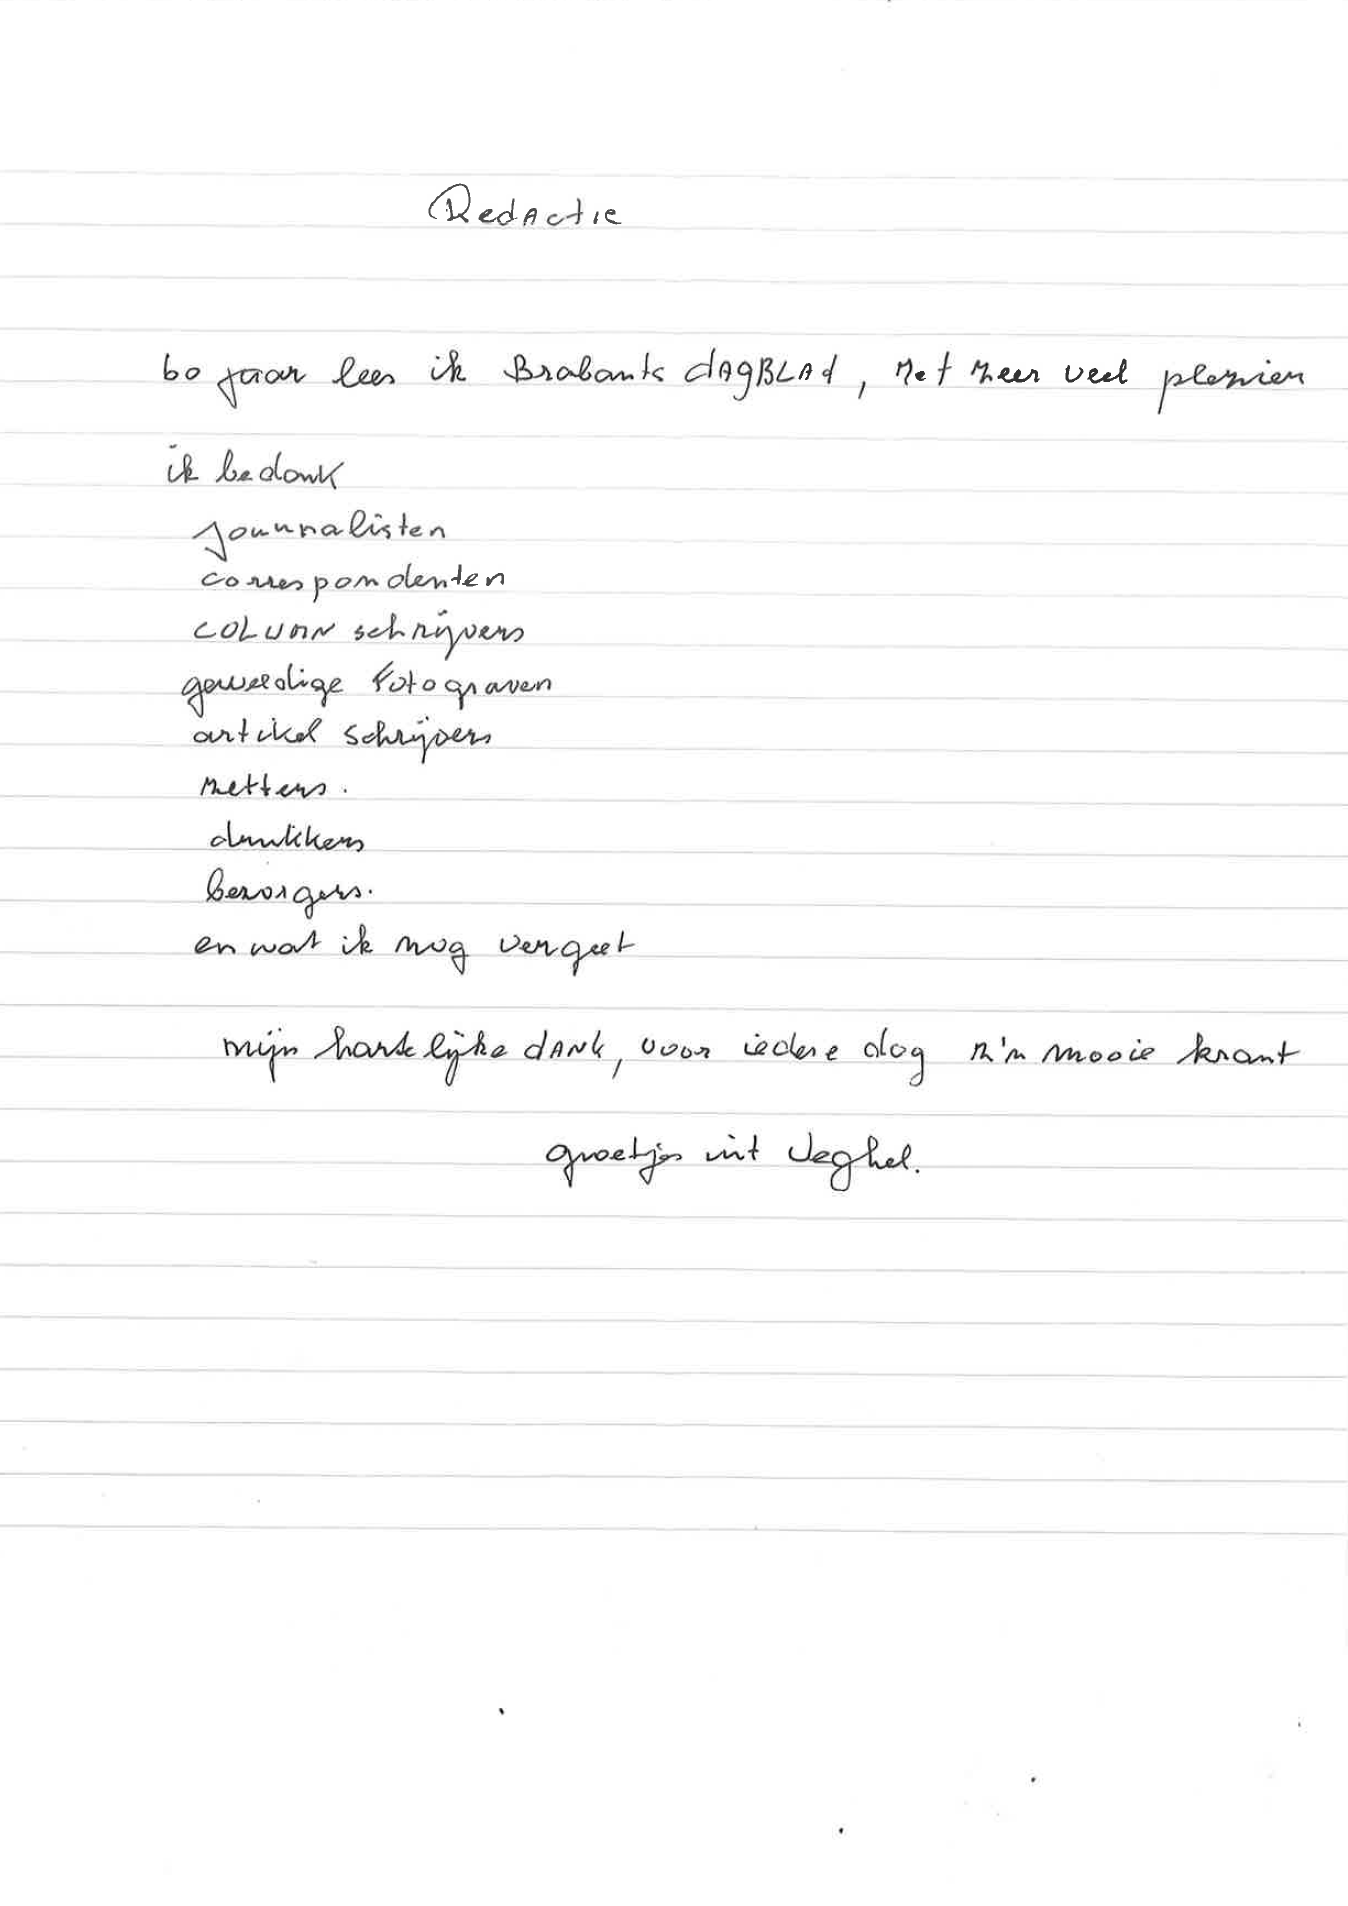 Redactie
60 jaar lees ik Brabants dagblad, met zeer veel plezier
ik bedank
journalisten
correspondenten
column schrijvers
geweldige fotograven
artikel schrijvers
zetters.
drukkers
bezorgers.
en wat ik nog vergeet
mijn hartelijke dank, voor iedere dag z'n mooie krant
groetjes uit Veghel.